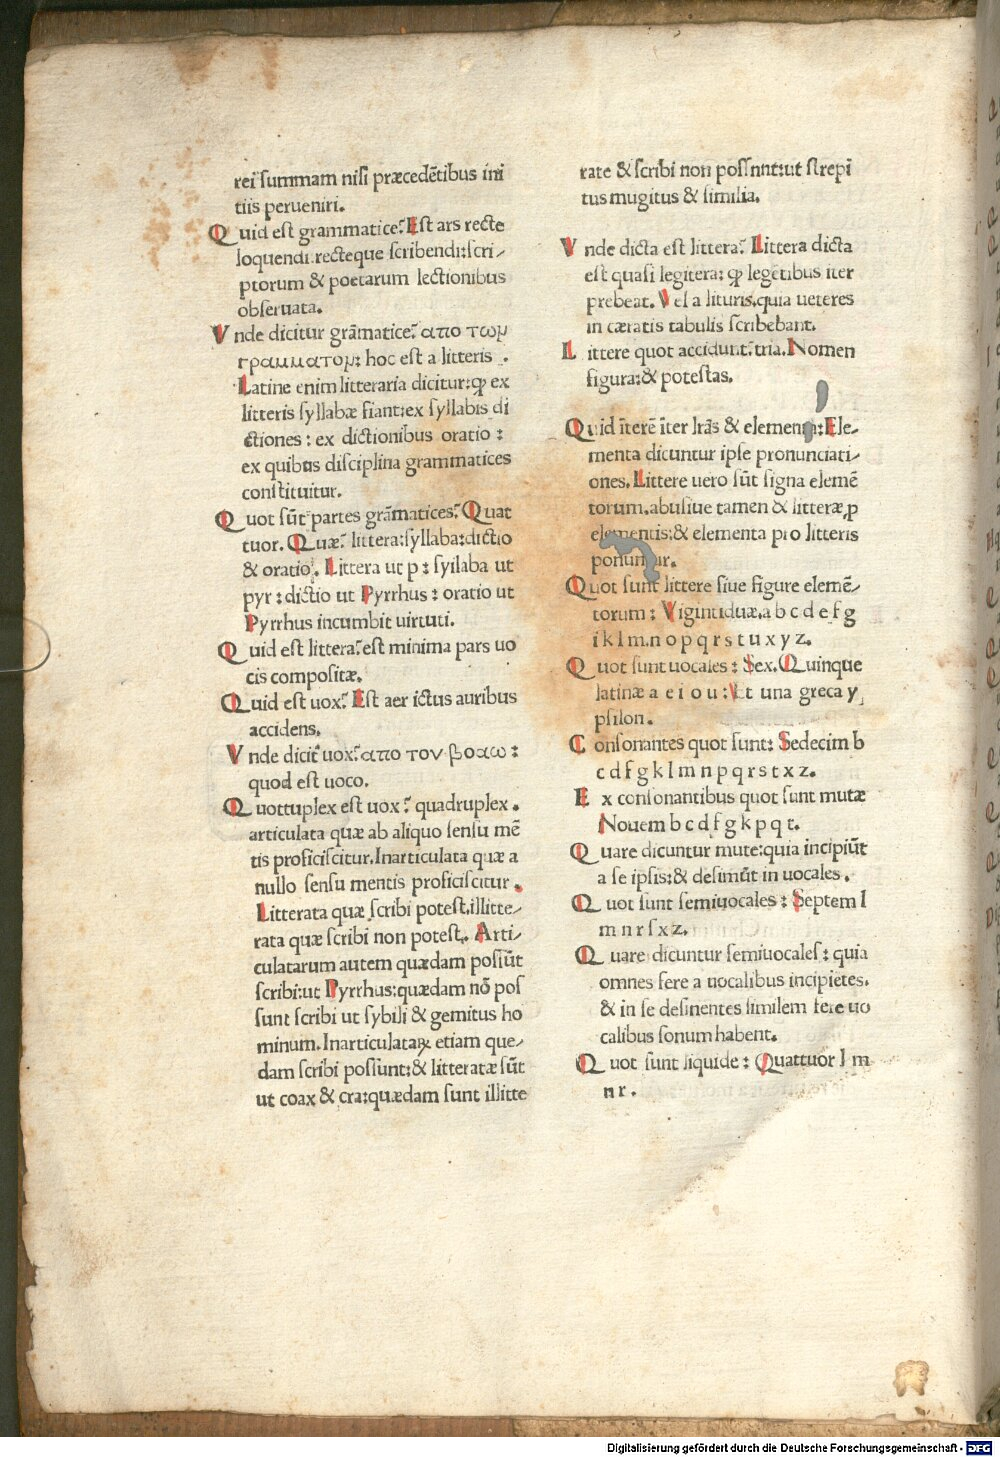 rei summam nisi præcedẽtibus ini
tiis perueniri.
Quid est grammatice? Est ars recte
loquendi recteque scribendi: scri-
ptorum & poetarum lectionibus
obseruata.
Vnde dicitur grãmatice? απο τωμ
γραμματομ: hoc est a litteris .
Latine enim litteraria dicitur: ꝙ ex
litteris syllabæ fiant: ex syllabis di
ctiones : ex dictionibus oratio :
ex quibus disciplina grammatices
constituitur.
Quot sũt partes grãmatices? Quat
tuor. Quæ? littera: syllaba: dictio
& oratio. Littera ut p : syllaba ut
pyr : dictio ut Pyrrhus : oratio ut
Pyrrhus incumbit uirtuti.
Quid est littera? est minima pars uo
cis compositæ.
Quid est uox? Est aer ictus auribus
accidens.
Vnde dicit̃ uox? απο τον βοαω :
quod est uoco.
Quottuplex est uox? quadruplex .
articulata quæ ab aliquo sensu mẽ
tis proficiscitur. Inarticulata quæ a
nullo sensu mentis proficiscitur .
Litterata quæ scribi potest. illitte-
rata quæ scribi non potest. Arti-
culatarum autem quædam possũt
scribi: ut Pyrrhus: quædam nõ pos
sunt scribi ut sybili & gemitus ho
minum. Inarticulataꝝ etiam que-
dam scribi possunt: & litteratæ sũt
ut coax & cra: quædam sunt illitte
rate & scribi non possnnt: ut strepi
tus mugitus & similia.
Vnde dicta est littera? Littera dicta
est quasi legitera: ꝙ legẽtibus iter
prebeat. Vel a lituris. quia ueteres
in cæratis tabulis scribebant.
Littere quot accidunt? tria. Nomen
figura: & potestas.
Quid ĩterẽ ĩter lrãs & elementa: Ele-
menta dicuntur ipse pronunciati-
ones. Littere uero sũt signa elemẽ
torum. abusiue tamen & litteræ ꝓ
elementis: & elementa pro litteris
ponuntur.
Quot sunt littere siue figure elemẽ-
torum : Vigintiduæ. a b c d e f g
i k l m n o p q r s t u x y z.
Quot sunt uocales : Sex. Quinque
latinæ a e i o u : Et una greca y
psilon .
Consonantes quot sunt: Sedecim b
c d f g k l m n p q r s t x z.
Ex consonantibus quot sunt mutæ
Nouem b c d f g k p q t.
Quare dicuntur mute: quia incipiũt
a se ipsis: & desinũt in uocales .
Quot sunt semiuocales : Septem l
m n r s x z.
Quare dicuntur semiuocales : quia
omnes fere a uocalibus incipiẽtes.
& in se desinentes similem fere uo
calibus sonum habent.
Quot sunt liquide : Quattuor l m
n r .
Digitalisierung gefördert durch die Deutsche Forschungsgemeinschaft - DFG